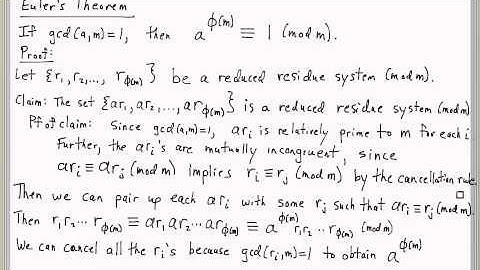 Euler's Theorem
If gcd(a,m)=1, then a^ϕ(m) ≡ 1 (mod m).
Proof:
Let {r₁,r₂,..., r_ϕ(m)} be a reduced residue system (mod m).
Claim: The set {ar₁,ar₂,...,ar_ϕ(m)} is a reduced residue system (mod m)
Pf of claim: Since gcd(a,m)=1, arᵢ is relatively prime to m for each i
Further, the arᵢ's are mutually incongruent, since
arᵢ ≡ arⱼ (mod m) implies rᵢ ≡ rⱼ (mod m) by the cancellation rule. □
Then we can pair up each arᵢ with some rⱼ such that arᵢ ≡ rⱼ (mod m).
Then r₁r₂⋯r_ϕ(m) ≡ ar₁ar₂⋯ar_ϕ(m) ≡ a^ϕ(m) r₁r₂⋯r_ϕ(m) (mod m)
We can cancel all the rᵢ's because gcd(rᵢ,m)=1 to obtain a^ϕ(m)